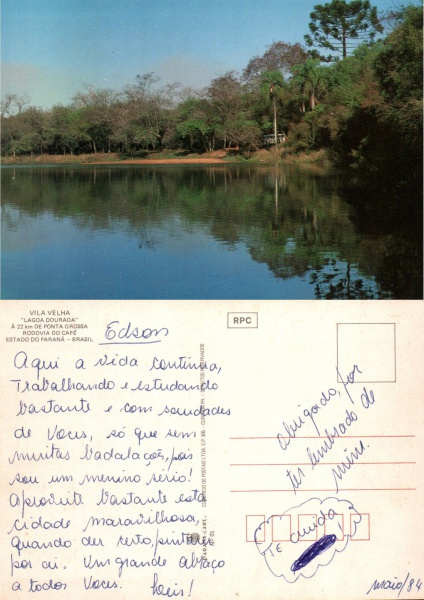 VILA VELHA
"LAGOA DOURADA"
À 22 km DE PONTA GROSSA
RODOVIA DO CAFÉ
ESTADO DO PARANÁ – BRASIL
RPC
Edson
Aqui a vida continua,
Trabalhando e estudando
bastante e com saudades
de Voces, só que sem
muitas badalações, pois
sou um menino sério!
Aproveite bastante esta
cidade maravilhosa,
quando der certo, pinte
por aí. Um grande abraço
a todos Voces.
Obrigado, por
ter lembrado de
mim.
Te cuida
maio/84